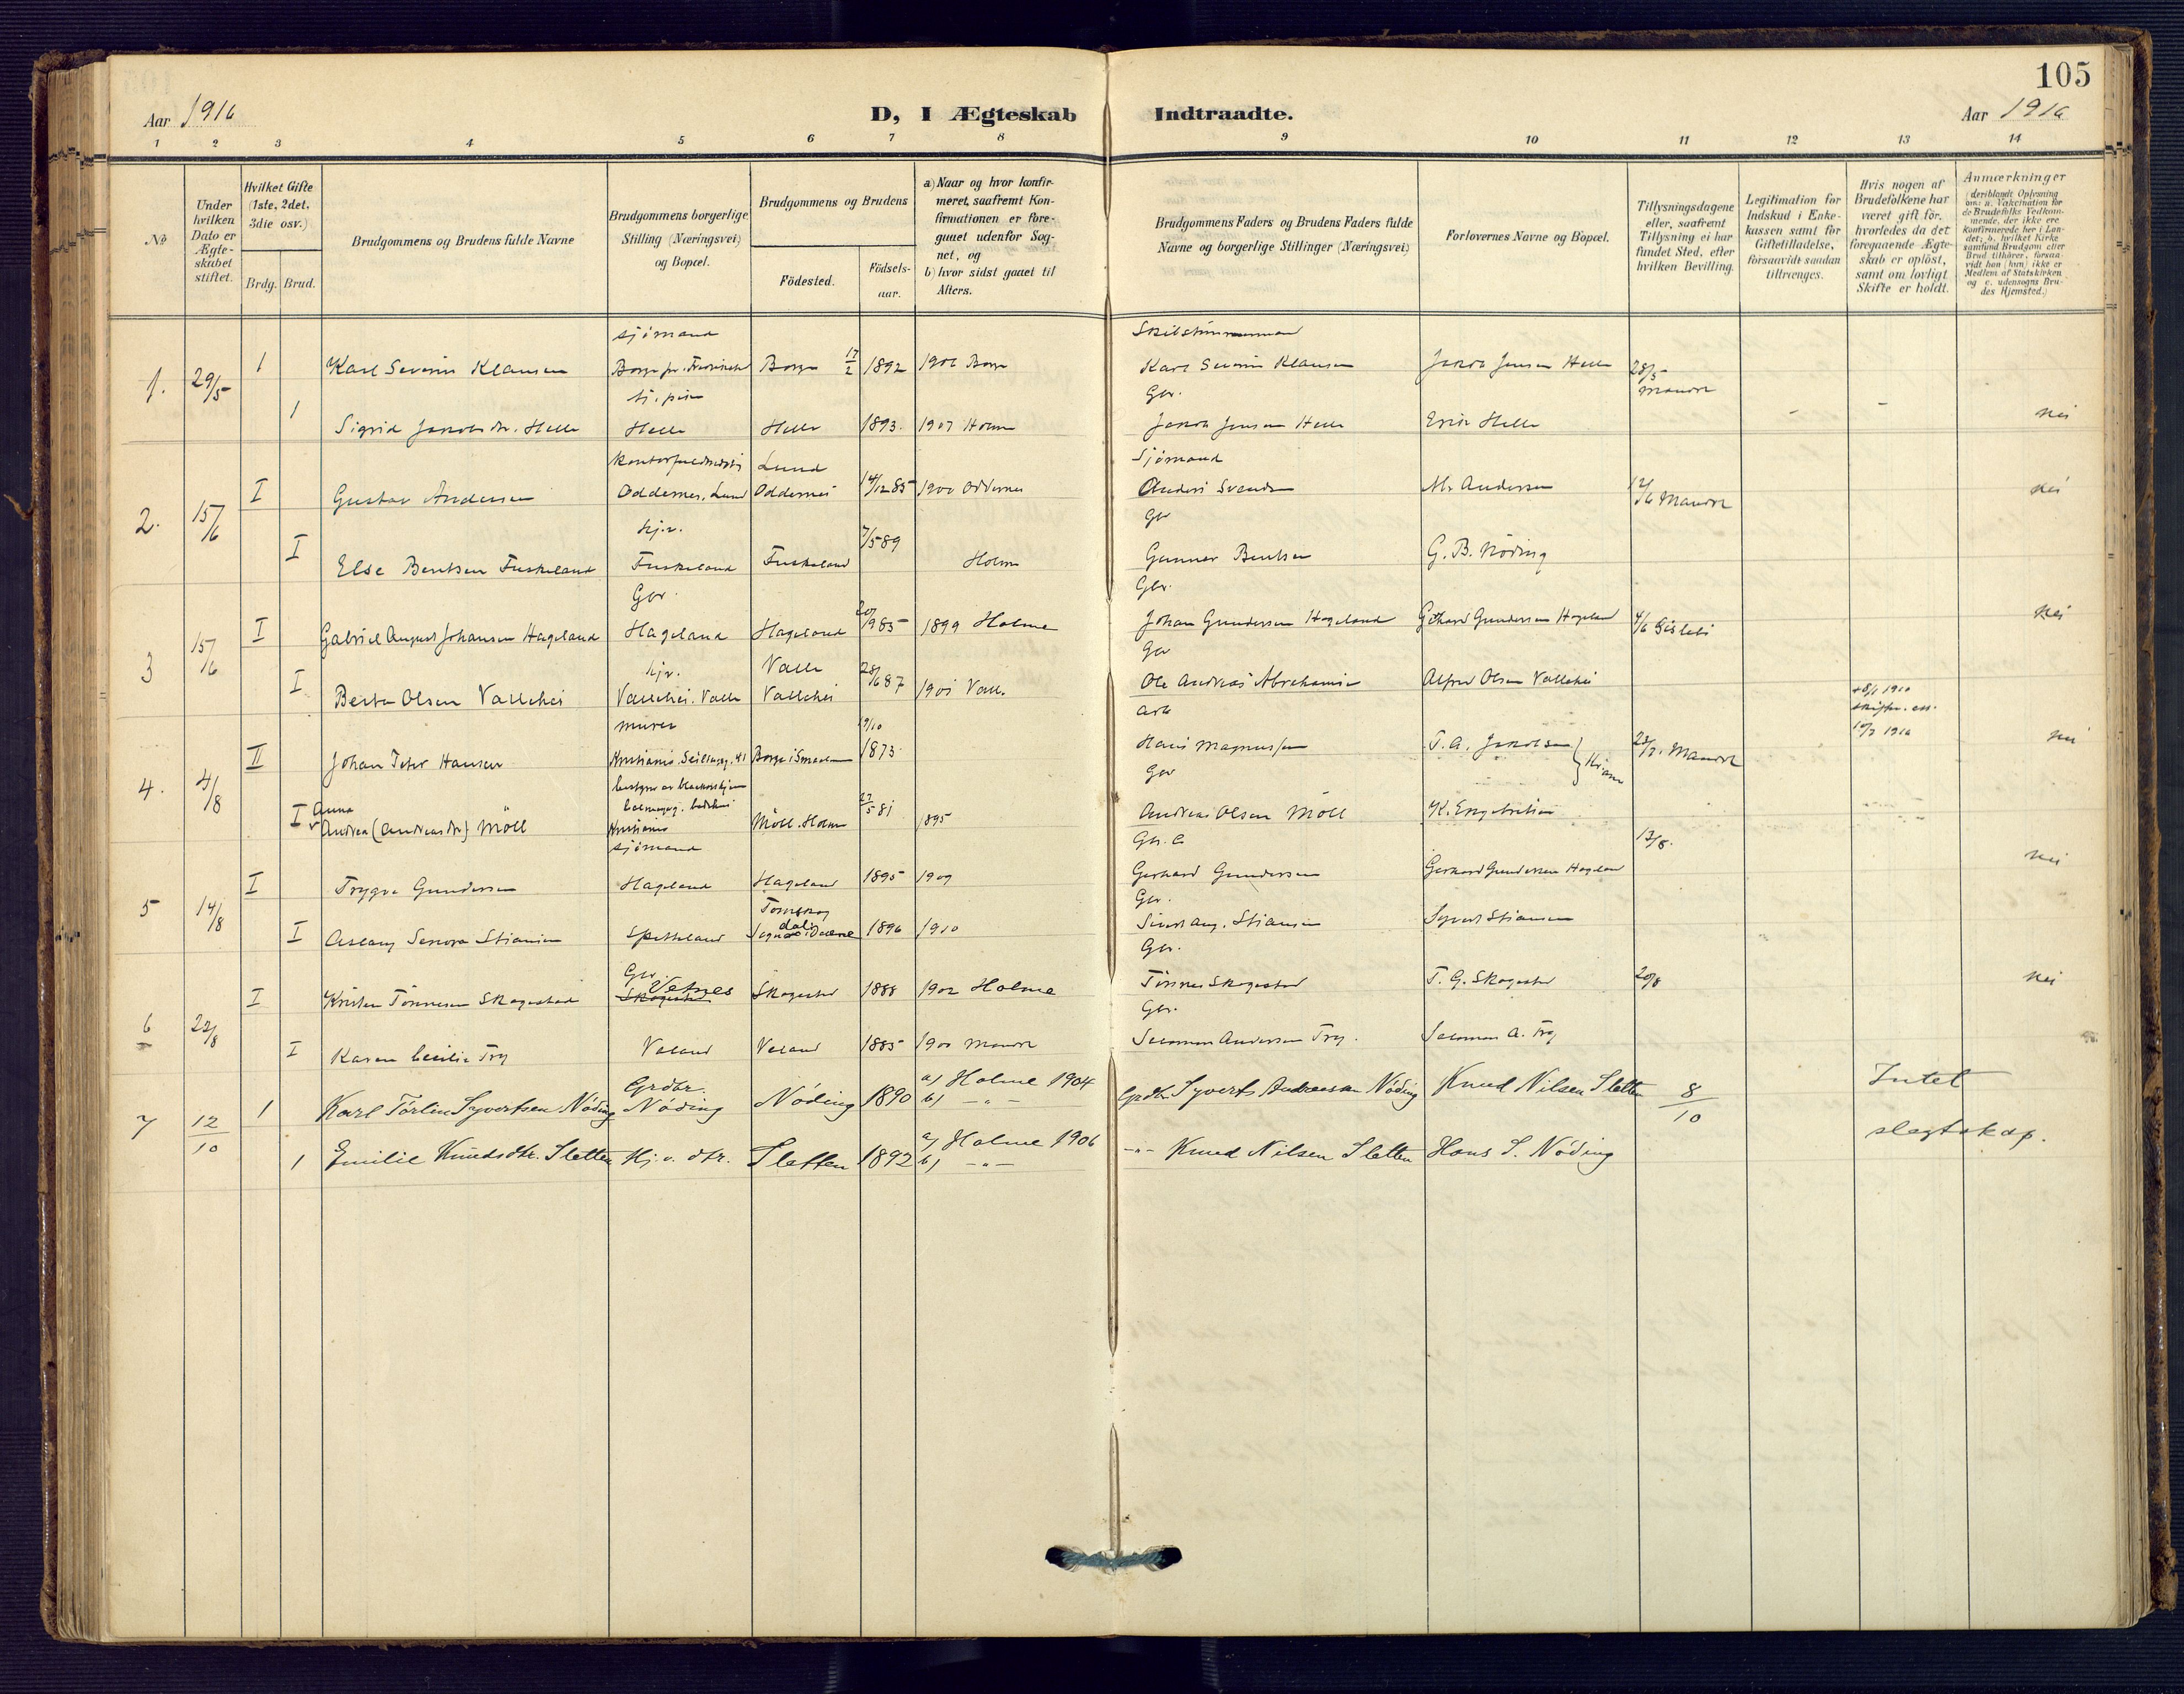 105
Aar 1916 D, I Ægteskab Indtraadte. Aar 1916
1 2 3 4 5 6 7 8 9 10 11 12 13 14
No
Under hvilken Dato er Ægteskabet stiftet.
Hvilket Gifte (1ste, 2det, 3die osv.)
Brdg. Brud.
Brudgommens og Brudens fulde Navne
Brudgommens borgerlige Stilling (Næringsvei) og Bopæl.
Brudgommens og Brudens
Födested. Födselsaar.
a) Naar og hvor konfirmeret, saafremt Konfirmationen er foregaaet udenfor Sognet, og
b) hvor sidst gaaet til Alters.
Brudgommens Faders og Brudens Faders fulde Navne og borgerlige Stillinger (Næringsvei)
Forlovernes Navne og Bopæl.
Tillysningsdagene eller, saafremt Tillysning ei har fundet Sted, efter hvilken Bevilling.
Legitimation for Indskud i Enkekassen samt for Giftetilladelse, forsaavidt saadan tiltrænges.
Hvis nogen af Brudefolkene har været gift før, hvorledes da det foregaaende Ægteskab er opløst, samt om lovligt Skifte er holdt.
Anmærkninger (deriblandt Oplysning om: a. Vakcination for de Brudefolks Vedkommende, der ikke ere Konfirmerede her i Landet; b. hvilket Kirkesamfund Brudgom eller Brud tilhører, forsaavidt han (hun) ikke er Medlem af Statskirken og c. udensogns Brudes Hjemsted.)
sjömand Skibstömmermand
1. 29/5 1 Karl Severin Klausen Borge pr. Fredrikstad Borge 17/2 1892 1906 Borge Karl Severin Klausen Jakob Jensen Helle 28/5 Mandal
Gbr.
1 Sigrid Jakobsdtr. Helle Helle Helle 1893 1907 Holme Jakob Jensen Helle Erik Helle - - nei
Lund Sjömand
2. 15/6 I Gustav Andersen Oddernes, Lund Oddernes 14/12 85 1900 Oddernes Anders Svendsen M. Andersen 12/6 Mandal nei
hj.v. 7/5 89 Gbr
I Else Bentsen Fuskeland Fuskeland Fuskeland Holme Gunnar Bentsen G. B. Nöding
Gbr. Gbr.
3 15/6 I Gabriel August Johansen Hageland Hageland Hageland 1985 1899 Holme Johan Gundersen Hageland Gerhard Gundersen Hageland 4/6 nei
hj.v. Valle 28/6 87 Gbr
I Berta Olsen Vallehei Vallehei, Valle Vallehei 1901 Valle Ole Andreas Abrahamsen Alfred Olsen Vallehei
murer 19/10 Arb 1910
4. 4/8 II Johan Peter Hansen Kristiania Borge i Smaalen 1873 Hans Magnussen T. A. Jakobsen 23/7. Mandal 1916 nei
Gbr
I Anna Andrea (Andreasdtr) Möll Kristiania Möll. Holme 27/5 81 1895 Andreas Olsen Möll K. Engebretsen
sjömand 13/8.
5 14/8 I Trygve Gundersen Hageland Hageland 1895 1909 Gerhard Gundersen Gerhard Gundersen Hageland nei
Gbr.
I Aslaug Senora Stiansen Spetteland Sogndal i Dalene 1896 1910 Sivert Aug. Stiansen Syvert Stiansen
Gbr. Gbr.
6 22/8 I Kristen Tönnesen Skagestad Skagestad Vetnes Skagestad 1888 1902 Holme Tönnes Skagestad T. G. Skagestad 20/8 nei
Gbr.
I Karen Cecilie Try Valand Valand 1885 1900 Mandal Salomon Andersen Try. Salomon A. Try
7 12/10 1 Karl Törlin Syvertsen Nöding Grdbr. Nöding Nöding 1890 a) Holme 1904 b) -"- Grdbr Syvert Andreassen Nöding Knud Nilsen Sletten 8/10 Intet
1 Emilie Knudsdtr. Sletten Hj. v. dtr. Sletten 1892 a) Holme 1906 b) -"- -"- Knud Nilsen Sletten Hans S. Nöding slegtskap.